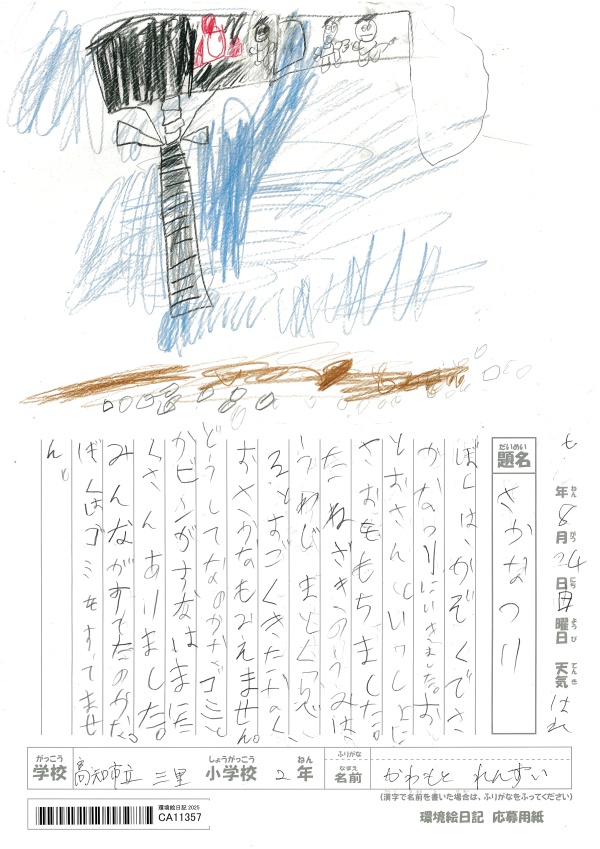 七年8月24日日曜日 天気 はれ
ねん がつ にち ようび てんき
だいめい
題名 さかなつり
ぼくは、かぞくでさ
かなつりにいきました。お
とおさんといっしょに
さおをもちました。
たねざきのうみは、
うわじまとくらべ
るとすごくきたなく、
おさかなもみえません。
どうしてなのかな。ゴミ
やビンがすなはまにた
くさんありました。
みんながすてたのかな。
ぼくはゴミをすてませ
ん。
がっこう
学校 高知市立 三里
しょうがっこう
小学校 2 ねん
年
ふりがな
なまえ
名前 かわもと れんすい
(漢字で名前を書いた場合は、ふりがなをふってください)
環境絵日記 2025
CA11357
環境絵日記 応募用紙